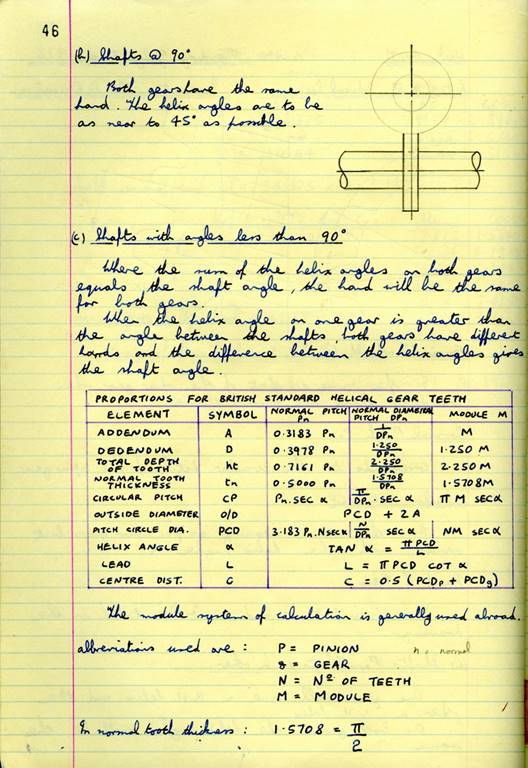 46
(b) Shafts @ 90°
Both gears have the same
hand. The helix angles are to be
as near to 45° as possible.
(c) Shafts with angles less than 90°
Where the sum of the helix angles on both gears
equals the shaft angle, the hand will be the same
for both gears.
When the helix angle on one gear is greater than
the angle between the shafts, both gears have different
hands and the difference between the helix angles gives
the shaft angle.
PROPORTIONS FOR BRITISH STANDARD HELICAL GEAR TEETH
ELEMENT SYMBOL NORMAL PITCH Pn NORMAL DIAMETRAL PITCH DPn MODULE M
ADDENDUM A 0·3183 Pn 1/DPn M
DEDENDUM D 0·3978 Pn 1·250/DPn 1·250 M
TOTAL DEPTH OF TOOTH ht 0·7161 Pn 2·250/DPn 2·250 M
NORMAL TOOTH THICKNESS tn 0·5000 Pn 1·5708/DPn 1·5708M
CIRCULAR PITCH CP Pn. SEC α π/DPn. SEC α π M SECα
OUTSIDE DIAMETER O/D PCD + 2A
PITCH CIRCLE DIA. PCD 3·183 Pn. N SEC α N/DPn SEC α NM SECα
HELIX ANGLE α TAN α = π PCD/L
LEAD L L = π PCD COT α
CENTRE DIST. C C = 0·5 (PCDp + PCDg)
The module system of calculation is generally used abroad.
abbreviations used are : P = PINION n = normal
g = GEAR
N = Nº OF TEETH
M = MODULE
In normal tooth thickness : 1·5708 = π/2